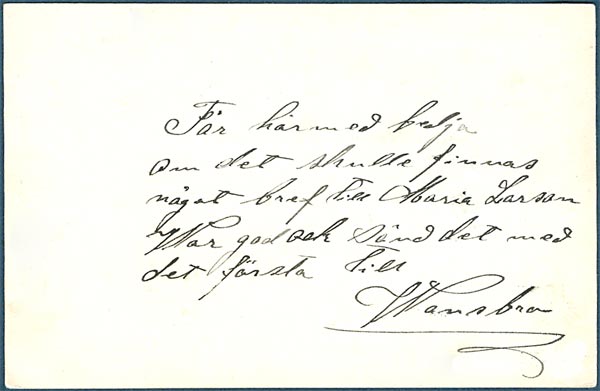 Får härmed bedja
om det skulle finnas
något bref till Maria Larson
War god ock sänd det med
det första till
Wansbro